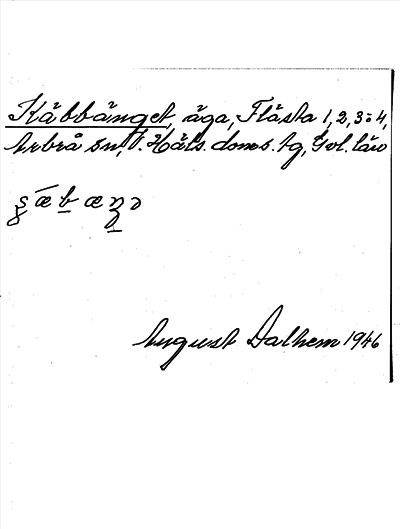 Käbbänget, äga, Flästa 1, 2, 3 o 4,
Arbrå sn, N. Häls. doms. tg, Gvl. län
August Dalhem 1946